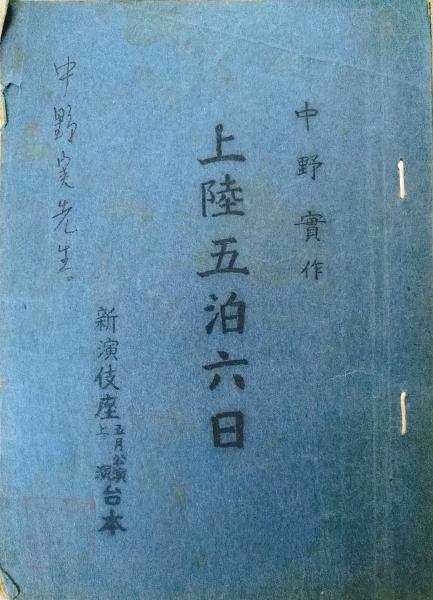 中野實作
上陸五泊六日
新演伎座
五月公演
上演
台本
中野実先生